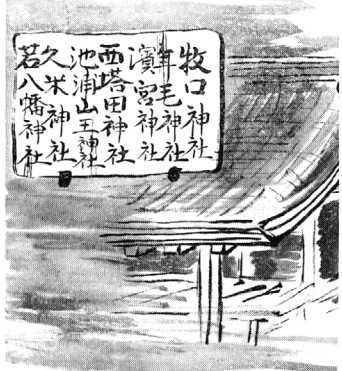 牧口神社
年毛神社
濱宮神社
西塔田神社
池浦山王神社
久米神社
若八幡神社